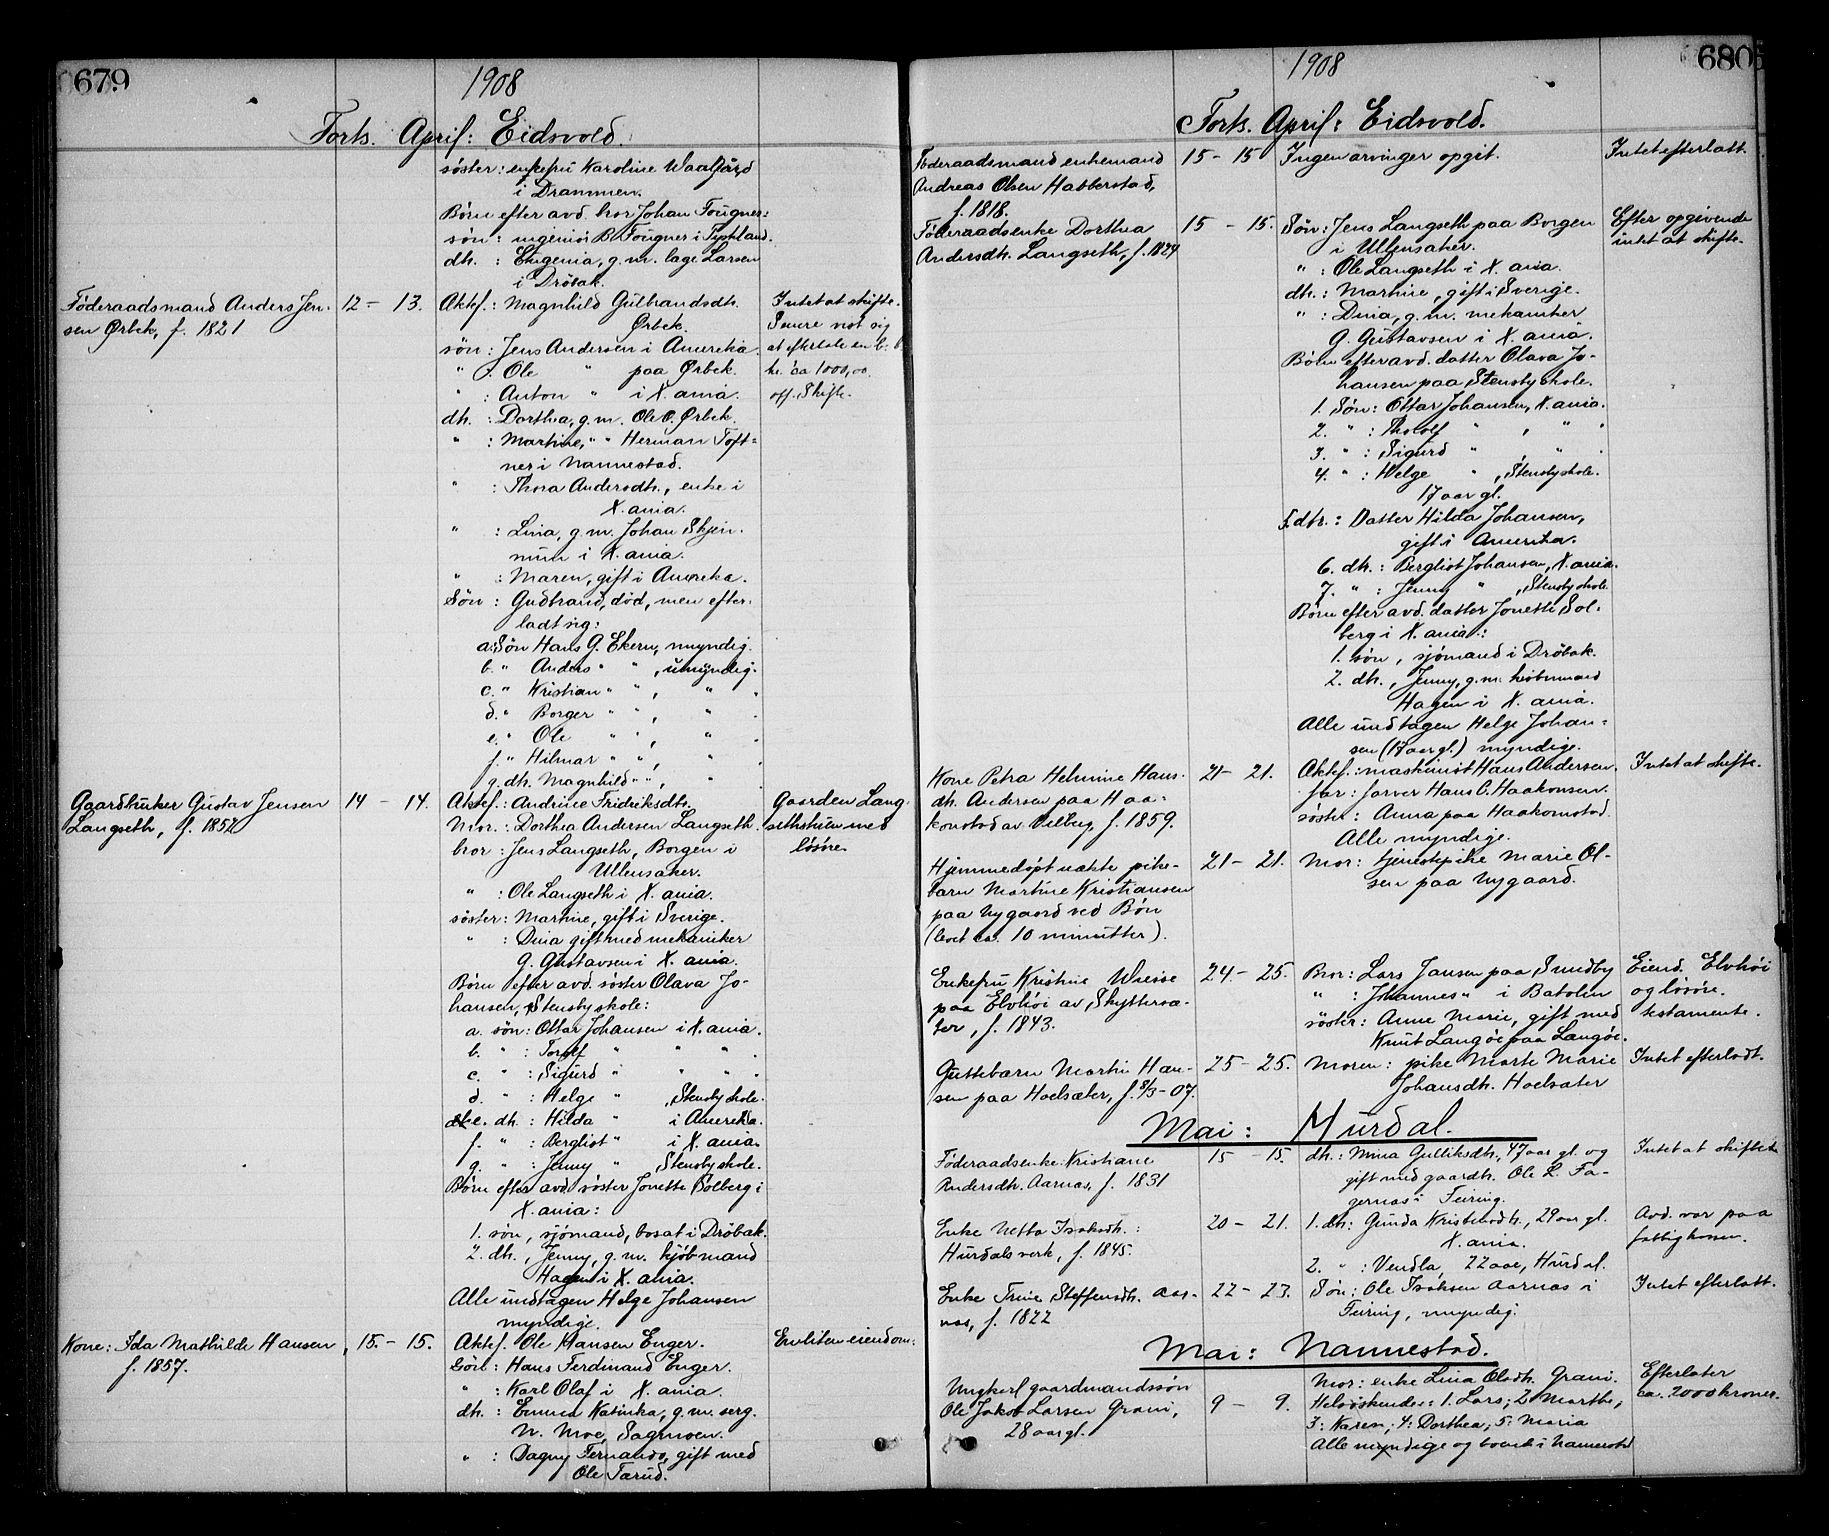 679
1908
Forts. April: Eidsvold.
søster: enkefru Karoline Waalgård
i Drammen.
Børn efter avd. bror Johan Fougner:
søn: ingeniør B. Fougner i Tyskland.
dh. : Eugenia, g.m. læge Larsen
i Drøbak.
Føderaadsmand Anders Jen-
sen Ørbek, f. 1821
12 - 13.
Æktef.: Magnhild Gulbrandsdh.
Ørbek.
søn: Jens Andersen i Amerika.
" : Ole " paa Ørbek.
" : Anton " i X.ania.
dh. : Dorthea, g.m. Ole O. Ørbek.
" : Martine, " " Herman Toft-
ner i Nannestad.
" : Thora Andersdh., enke i
X.ania.
" : Lina, g.m. Johan Skjen-
num i X.ania.
" : Maren, gift i Amerika.
Søn : Gudbrand, død, men efter-
ladt sig:
a. Søn Hans G. Ekern, myndig.
b. " Anders " " , umyndig.
c. " Kristian " " , " .
d. " Borger " " , " .
e. " Ole " " , " .
f. " Hilmar " " , " .
g. dh. Magnhild " " , " .
Intet at skifte.
Senere vist sig
at efterlate en b.
kr. ca 1000,00
off. Skifte.
Gaardbruker Gustav Jensen
Langseth, f. 1857
14 - 14.
Æktef.: Andrine Fridriksdh.
Mor. : Dorthea Andersen Langseth.
bror : Jens Langseth, Borgen i
Ullensaker.
" : Ole Langseth i X.ania.
søster: Martine, gift i Sverige.
" : Dina gift med mekaniker
G. Gustavsen i X.ania.
Børn efter avd. søster Olava Jo-
hansen, Stensby skole:
a. søn: Ottar Johansen i X.ania.
b. " : Torolf " " " .
c. " : Sigurd " " " .
d. " : Helge " , Stensby skole.
e. dh. : Hilda " i Amerika.
f. " : Bergliot " i X.ania.
g. " : Jenny " , Stensby skole.
Børn efter avd. søster Jonette Solberg i
X.ania:
1. søn, sjømand, bosat i Drøbak.
2. dh., Jenny, g.m. kjøbmand
Hagen i X.ania.
Alle undtagen Helge Johansen
myndige.
Gaarden Lang-
sethstuen med
løsøre.
Kone: Ida Mathilde Hansen,
f. 1857.
15. - 15.
Æktef. Ole Hansen Enger.
Søn : Hans Ferdinand Enger.
" : Karl Olaf i X.ania.
dh. : Emma Katinka, g.m. serg.
N. Moe, Sagmoen.
" : Dagny Fernanda, gift med
Ole Tærud.
En liten eiendom.
680
1908
Forts. April: Eidsvold.
Føderaadsmand enkemand
Andreas Olsen Habberstad,
f. 1818.
15 - 15
Ingen arvinger opgit.
Intet efterlatt.
Føderaadsenke Dorthea
Andersdh. Langseth, f. 1824
15 - 15.
Søn: Jens Langseth paa Borgen
i Ullensaker.
" : Ole Langseth i X.ania.
dh. : Martine, gift i Sverige.
" : Dina, g.m. mekaniker
G. Gustavsen i X.ania.
Børn efter avd. datter Olava Jo-
hansen paa Stensby skole.
1. Søn: Ottar Johansen, X.ania.
2. " : Thololf " , " .
3. " : Sigurd " " .
4. " : Helge " , Stensby skole.
17 aar gl.
5. dtr. : Datter Hilda Johansen,
gift i Amerika.
6. dh. : Bergliot Johansen, X.ania.
7. " : Jenny " , Stensby skole.
Børn efter avd. datter Jonette Sol-
berg i X.ania.:
1. søn, sjømand i Drøbak.
2. dh., Jenny, g.m. kjøbmand
Hagen i X.ania.
Alle undtagen Helge Johan-
sen (17 aar gl.) myndige.
Efter opgivende
intet at skifte.
Kone Petra Helmine Hans-
dh. Andersen paa Haa-
konstad av Vilberg, f. 1859.
21 - 21.
Æktef.: maskinist Hans Andersen.
far : farver Hans O. Haakonsen.
søster : Anna paa Haakonstad.
Alle myndige.
Intet at skifte.
Hjemmedøpt uekte pike-
barn Martine Kristiansen
paa Nygaard ved Bøn
(levet ca. 10 minutter).
21 - 21.
Mor: tjenestepike Marie Ol-
sen paa Nygaard.
Enkefru Kristine Wiese
paa Elvhøi av Skyttersæ-
ter, f. 1843.
24 - 25.
Bror: Lars Jansen paa Sundby
" : Johannes " i Batolin
søster: Anne Marie, gift med
Knut Langøie paa Langøie.
Eiend. Elvhøi
og løsøre.
testamente.
Guttebarn Martin Han-
sen paa Hoelsæter, f. 8/3 - 07.
25 - 25.
Moren: pike Marte Marie
Johansdh. Hoelsæter
Intet efterladt.
Mai: Hurdal.
Føderaadsenke Kristiane
Andersdh. Aarnæs, f. 1831
15 - 15.
dh.: Mina Gulliksdh., 47 aar gl. og
gift med gaardh. Ole L. Fa-
gernæs i Feiring.
Intet at skifte
Enke Netta Isaksdh.:
Hurdals verk, f. 1845.
20 - 21.
1. dh: Gunda Kristensdh., 29 aar gl.
X.ania.
2. " : Vendla, 22 aar, Hurdal.
Avd. var paa
fattigkassen.
Enke Trine Steffensdh. Aar-
næs, f. 1822
22 - 23.
Søn: Ole Isaksen Aarnæs i
Feiring, myndig.
Intet efterlatt.
Mai: Nannestad.
Ungkarl gaardmandssøn
Ole Jakob Larsen Grani,
28 aar gl.
9 - 9.
Mor: enke Lina Olsdh. Grani.
Helsøskende: 1. Lars; 2 Marthe;
3: Karen; 4: Dorthea; 5: Maria
Alle myndige og boende i Nannestad
Efterlater
ca. 2000 kroner.